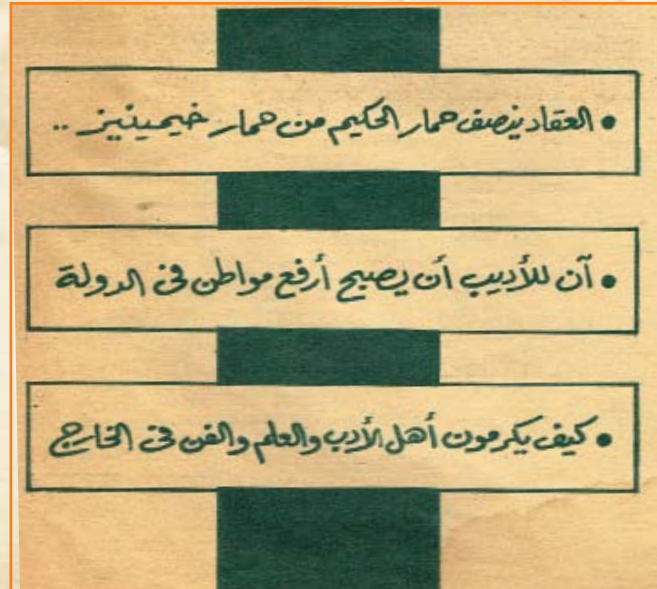 • العقاد ينصف حمار الحكيم من حمار خيمينيز ..
• آن للأديب أن يصبح أرفع مواطن في الدولة
• كيف يكرمون أهل الأدب والعلم والفن في الخارج